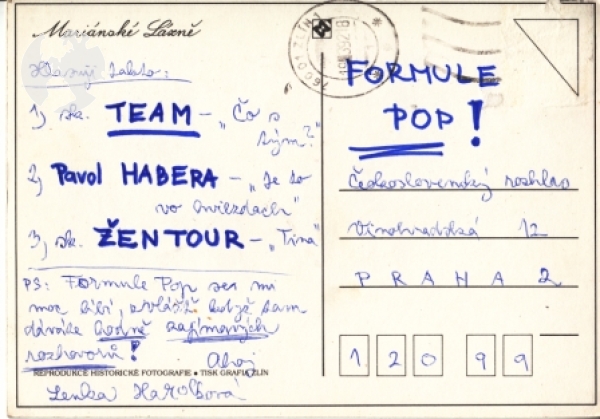 Mariánské Lázně
Hlasuji takto:
1, sk. TEAM – „Čo s
tým?"
2, Pavol HABERA – „Je to
vo hviezdach"
3, sk. ŽENTOUR – „Tina"
PS: Formule Pop se mi
moc líbí, zvlášť když tam
dáváte hodně zajímavých
rozhovorů! Ahoj
REPRODUKCE HISTORICKÉ FOTOGRAFIE • TISK GRAFIA ZLÍN
Lenka
FORMULE
POP!
Československý rozhlas
Vinohradská 12
PRAHA 2
120 99